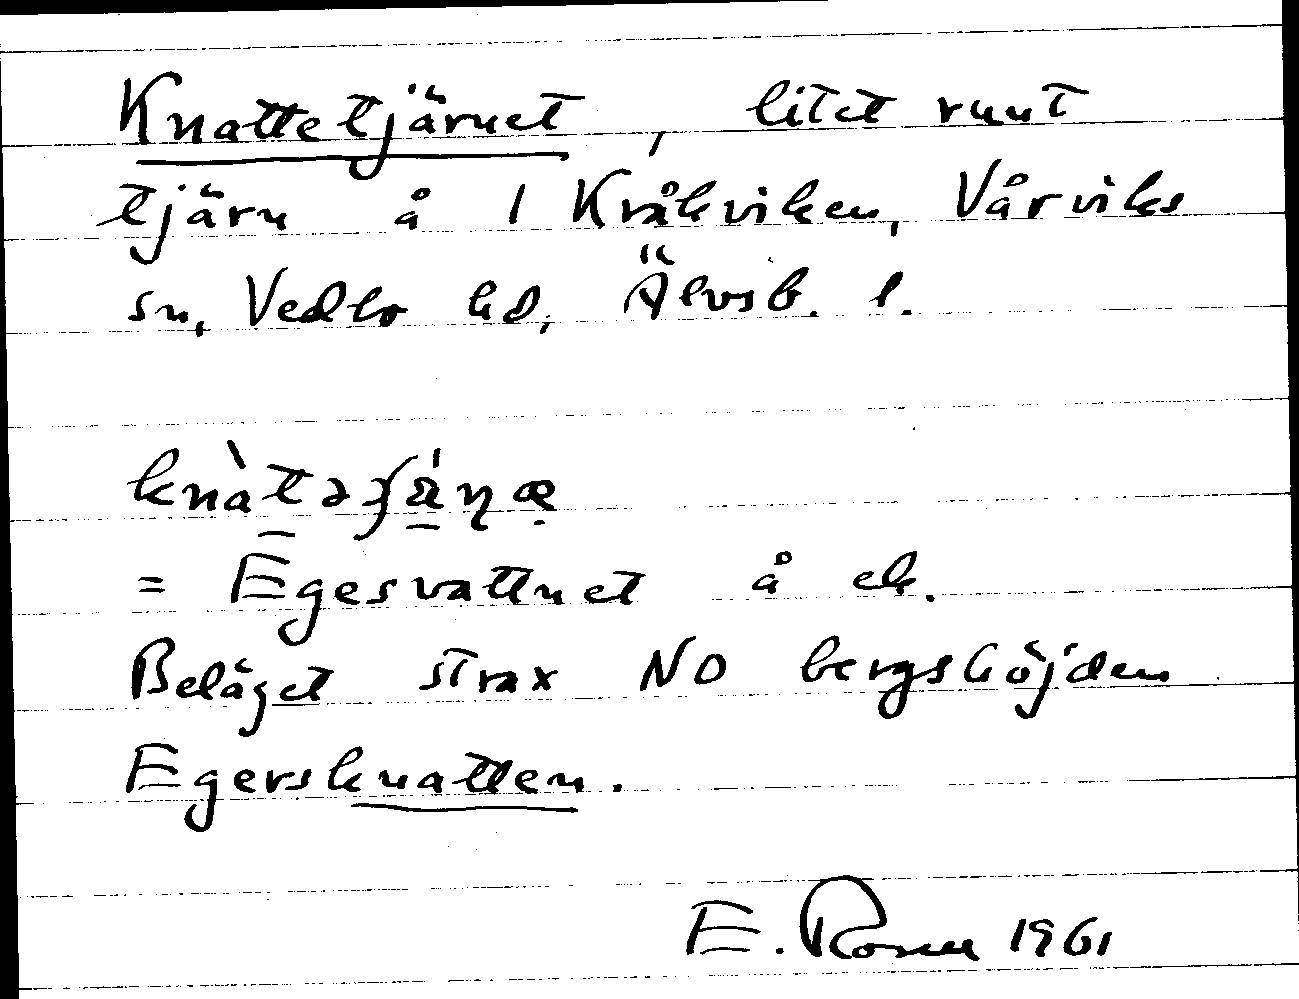 Knattetjärnet, litet runt
tjärn å 1 Kråkviken, Vårviks
sn, Vedbo hd, Älvsb. l.
= Egesvattnet å ek.
Beläget strax NO bergshöjden
Egersknatten.
E. Rosell 1961